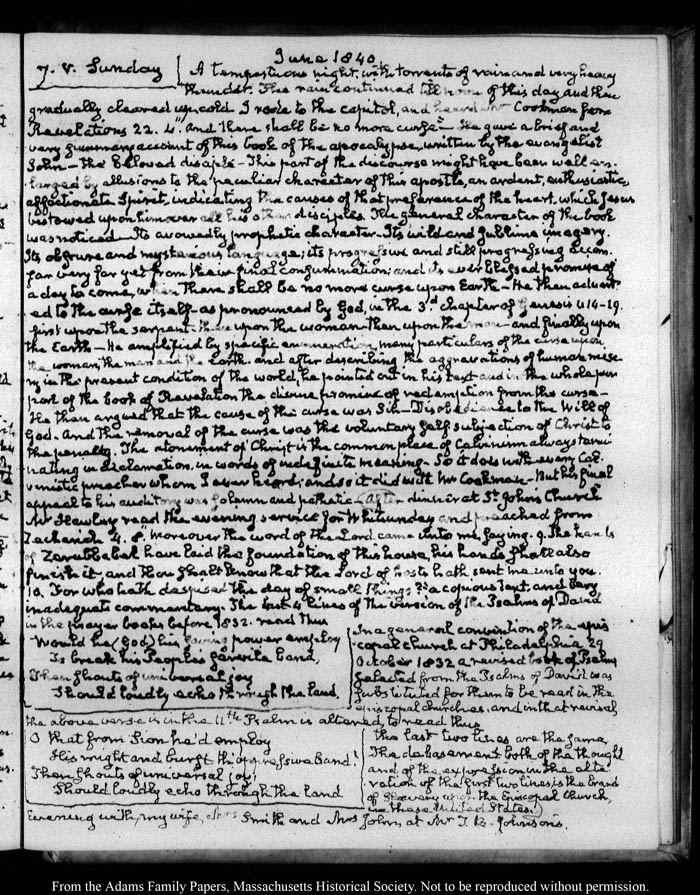 June 1840
7. V. Sunday
A tempestuous night, with torrents of rain and very heavy
thunder. The rain continued till noon of this day and then
gradually cleared up, cold I rode to the capitol, and heard Mr Cookman from
Revelations 22. 4. "And there shall be no more curse" He gave a brief and
very summary account of this book of the apocalypse, written by the evangelist
John—the beloved disciple—This part of the discourse might have been well en-
larged by allusions to the peculiar character of this apostle, an ardent, enthusiastic,
affectionate Spirit, indicating the causes of that preference of the heart, which Jesus
bestowed upon him over all his other disciples. The general character of the book
was noticed—Its avowedly prophetic character—Its wild and sublime imagery.
Its obscure and mysterious language; its progressive and still progressing accom.
far very far yet from their final consummation; and its ever blessed promise of
a day to come, when there shall be no more curse upon Earth—He then advert-
ed to the curse itself—as pronounced by God, in the 3d chapter of Genesis v 14-19.
first upon the serpent—then upon the woman—then upon the man—and finally upon
the Earth—He amplified by specific enumeration, many particulars of the curse upon
the woman, the man and the earth. and after describing the aggravations of human mise-
ry in the present condition of the world, he pointed out in his text and in the whole pur
port of the book of Revelation the divine promise of redemption from the curse—
He then argued that the cause of the curse was Sin—Disobedience to the Will of
God. And the removal of the curse was the voluntary self subjection of Christ to
the penalty. The atonement of Christ is the common place of Calvinism always termi
nating in declamation, in words of indefinite meaning—So it does with every Cal-
vinistic preacher whom I ever heard; and so it did with Mr Cookman—But his final
appeal to his auditory was solemn and pathetic. After dinner at St. John's Church
Mr Hawley read the evening service for Whitsunday and preached from
Zechariah 4. 8. Moreover the word of the Lord came unto me, saying. 9. The hands
of Zerubbabel have laid the foundation of this house, his hands shall also
finish it; and thou shalt know that the Lord of hosts hath sent me unto you.
10. For who hath despised the day of small things? a copious text, and very
inadequate commentary. The last 4 lines of the version of the Psalms of David
in the prayer books before 1832. read thus
Would he (God) his saving power employ
To break his People's servile band,
Then shouts of universal joy
Should loudly echo through the land.
In a general convention of the epis
copal church at Philadelphia 29
October 1832 a revised book of Psalms
selected from the Psalms of David was
substituted for them to be read in the
episcopal churches. and in that revisal
the above verse is in the 11th Psalm is altered to read thus
O that from Sion he'd employ
His might and burst th' oppressive band!
Then shouts of universal joy
Should loudly echo through the land
the last two lines are the same
The debasement both of the thought
and of the expression in the alte
ration of the first two lines is the brand
of Slavery upon the Episcopal Church,
in these United States.)
Evening with, my wife, Mrs Smith and Mrs John, at Mr T. B. Johnson's.
From the Adams Family Papers, Massachusetts Historical Society. Not to be reproduced without permission.